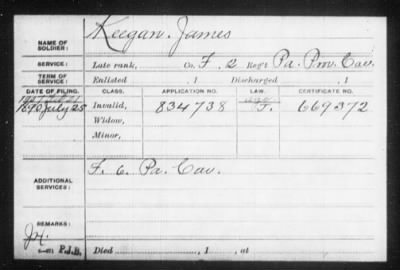 NAME OF SOLDIER: Keegan, James
SERVICE: Late rank, Co. F, 2 Reg't Pa. Prov. Cav.
TERM OF SERVICE: Enlisted , 1 Discharged , 1
DATE OF FILING. CLASS. APPLICATION NO. LAW. CERTIFICATE NO.
1890 July 25 Invalid, 834738 F. 669372
Widow,
Minor,
ADDITIONAL SERVICES: F. 6. Pa. Cav.
REMARKS:
P.I.B. Died , 1 , at